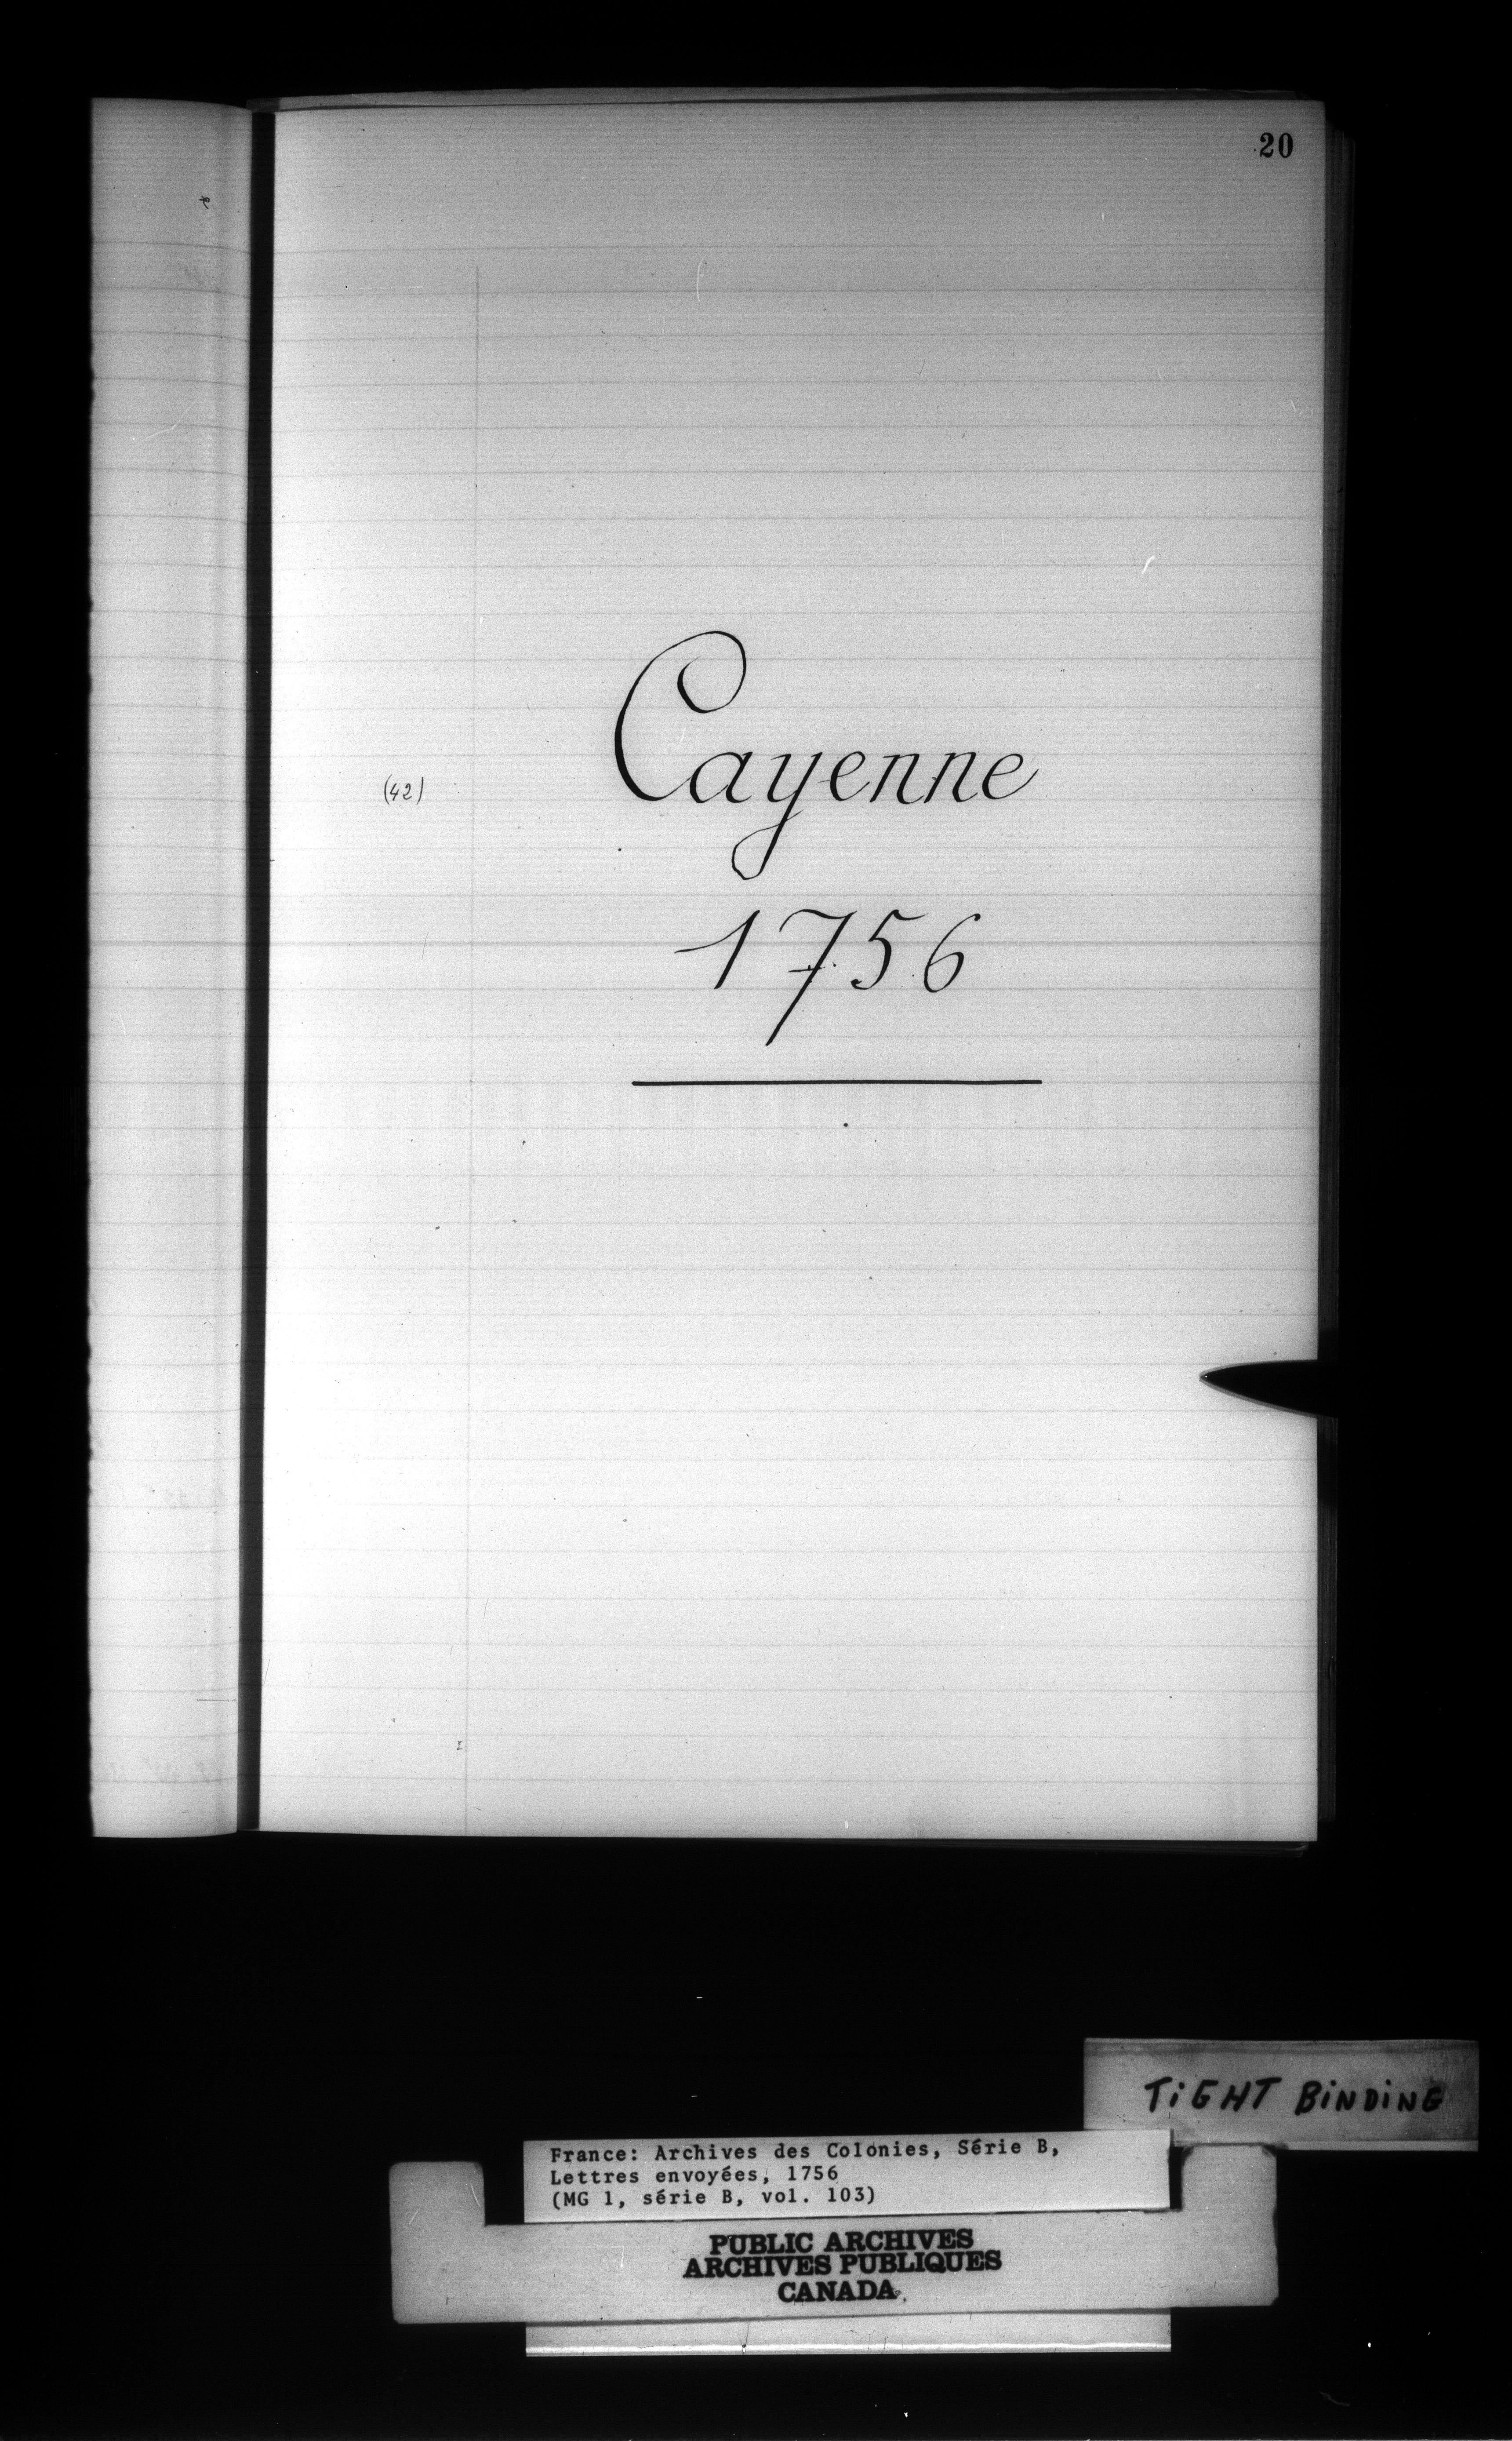 20
Cayenne
(42)
1756
TiGHT BiNDiNG
France: Archives des Colonies, Série B,
Lettres envoyées, 1756
(MG 1, série B, vol. 103)
PUBLIC ARCHIVES
ARCHIVES PUBLIQUES
CANADA